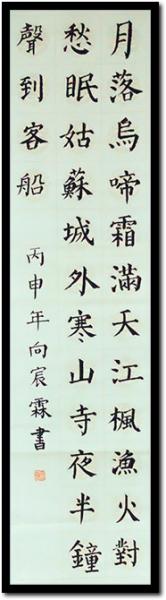 月落烏啼霜滿天江楓漁火對
愁眠姑蘇城外寒山寺夜半鐘
聲到客船
丙申年向宸霖書